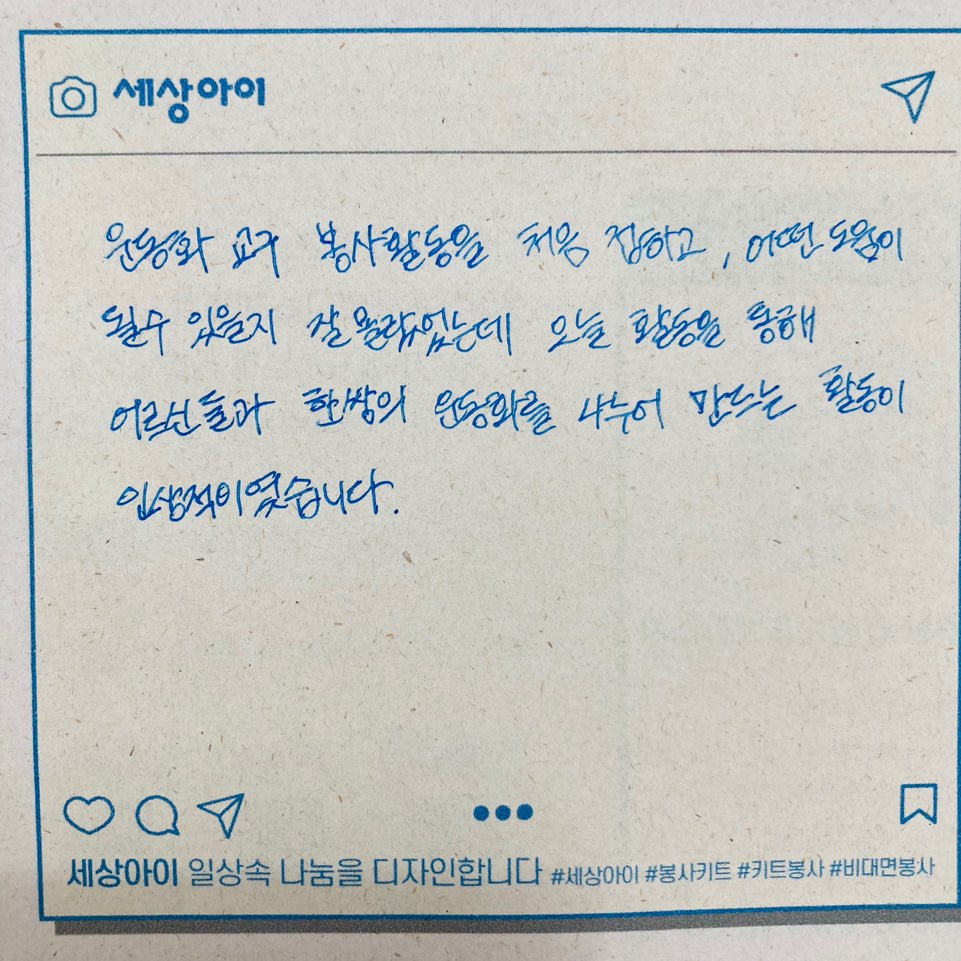 세상아이
운동화 교구 봉사활동을 처음 접하고, 어떤 도움이
될수 있을지 잘 몰랐었는데 오늘 활동을 통해
어르신들과 한쌍의 운동화를 나누어 만드는 활동이
인상적이였습니다.
세상아이 일상속 나눔을 디자인합니다 #세상아이 #봉사키트 #키트봉사 #비대면봉사